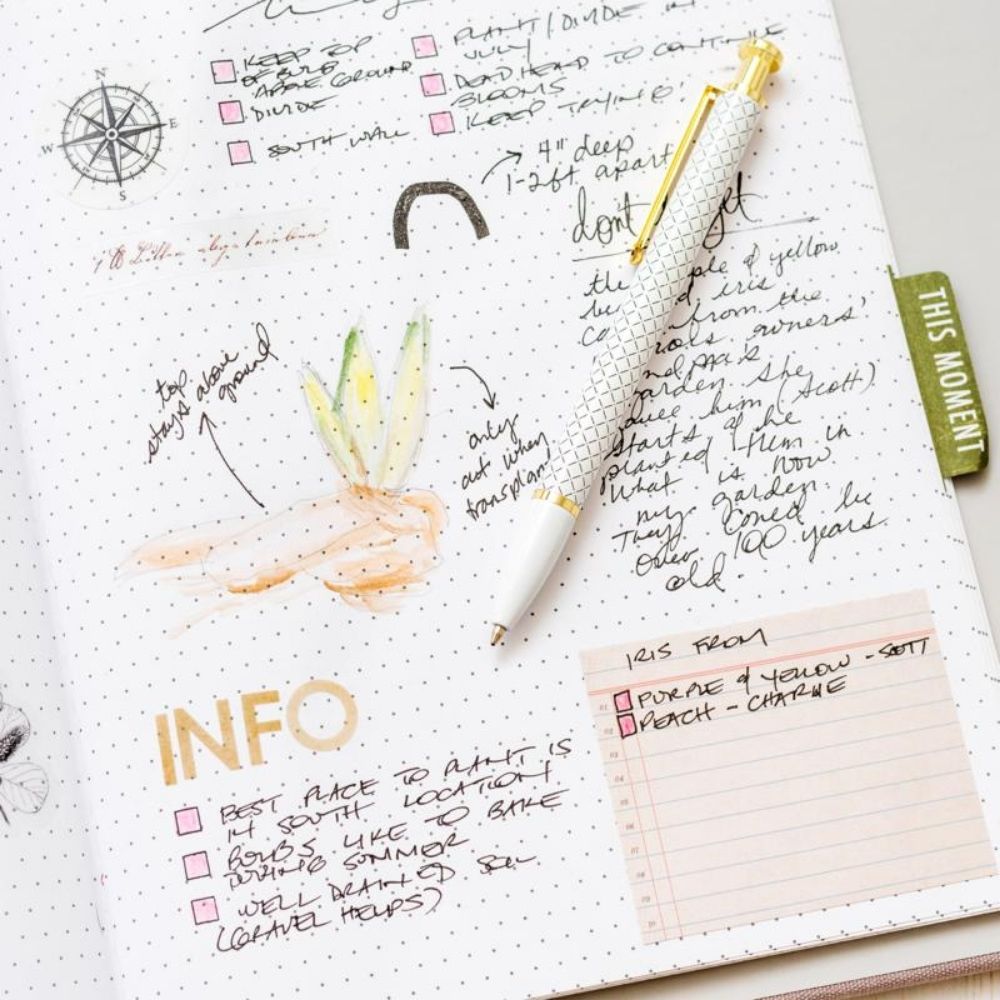 KEEP TOP
OF BULB
ABOVE GROUND
DIVIDE
SOUTH WALL
PLANT/DIVIDE IN
JULY
DEAD HEAD TO CONTINUE
BLOOMS
KEEP TRYING!
N
E
S
W
4" deep
1-2ft apart
don't
the ple & yellow
iris
from the
owners'
garden. She
gave him (Scott)
starts & he
planted them in
what is now
my garden.
They could be
over 100 years
old.
THIS MOMENT
top
stays above
ground
only
cut when
transplant
INFO
BEST PLACE TO PLANT IS
IN SOUTH LOCATION
BULBS LIKE TO BAKE
DURING SUMMER
WELL DRAINED SOIL
(GRAVEL HELPS)
IRIS FROM
01 PURPLE & YELLOW - SCOTT
02 PEACH - CHARLIE
04
05
06
07
08
09
10